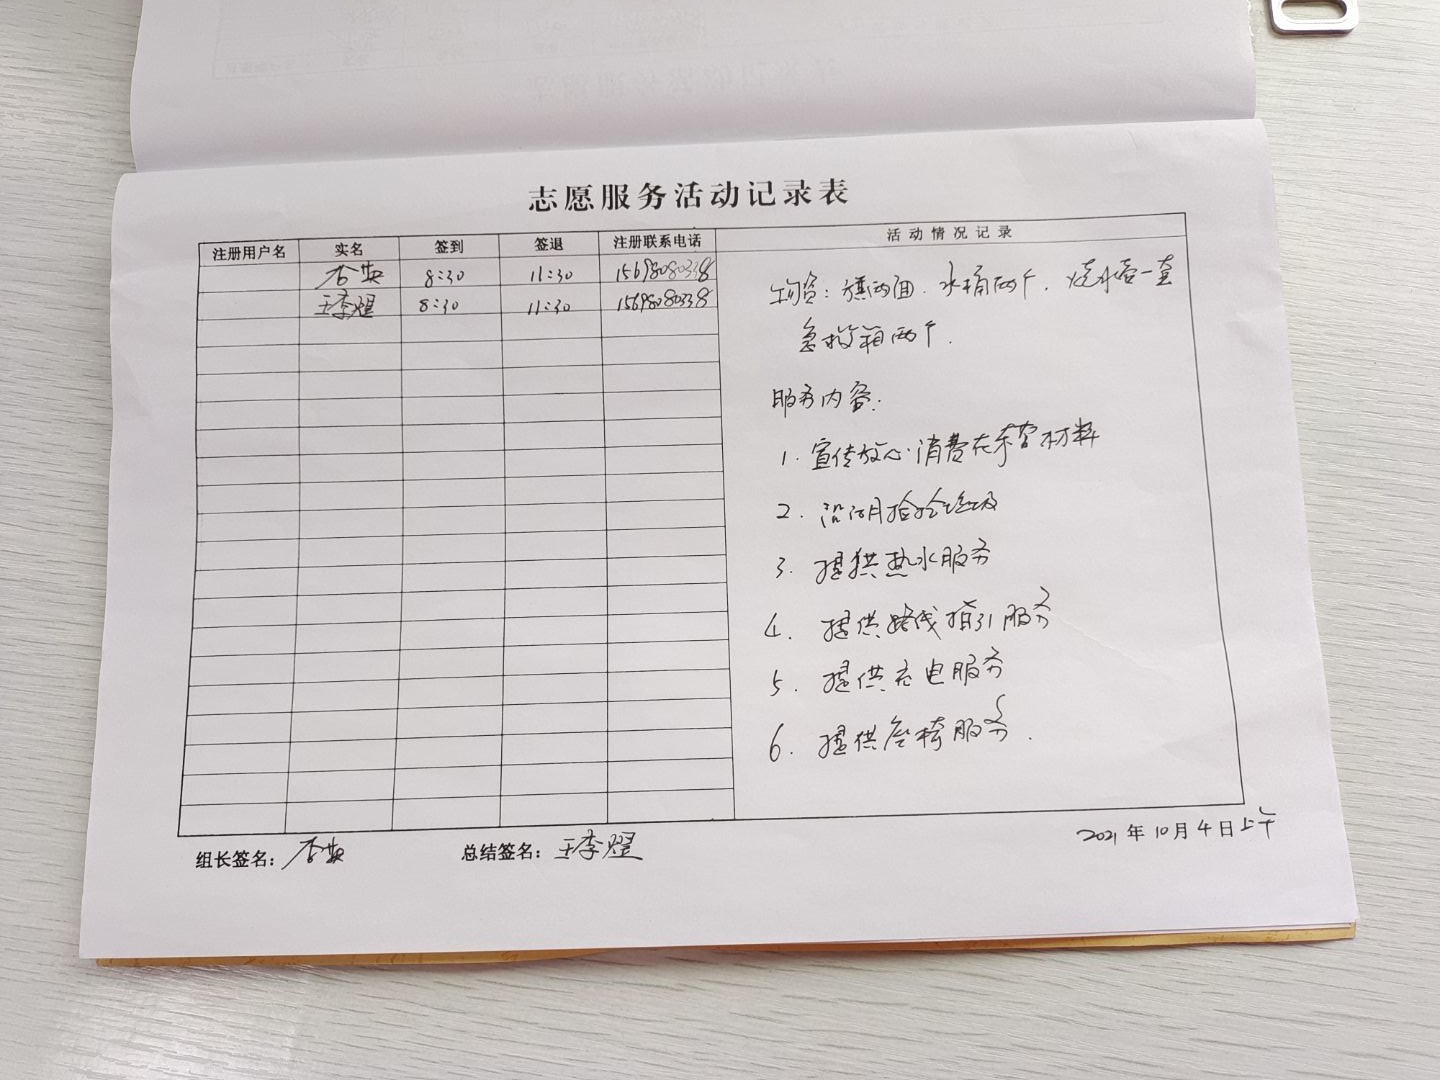 志愿服务活动记录表
注册用户名 实名 签到 签退 注册联系电话 活动情况记录
杏英 8:30 11:30 15698080338
王李煜 8:30 11:30 15698080338
物资：旗两面．水桶两个．烧水壶一套
急救箱两个．
服务内容：
1. 宣传放心消费在 材料
2. 沿湖捡拾垃圾
3. 提供热水服务
4. 提供路线指引服务
5. 提供充电服务
6. 提供座椅服务．
组长签名：杏英 总结签名：王李煜
2021年10月4日上午